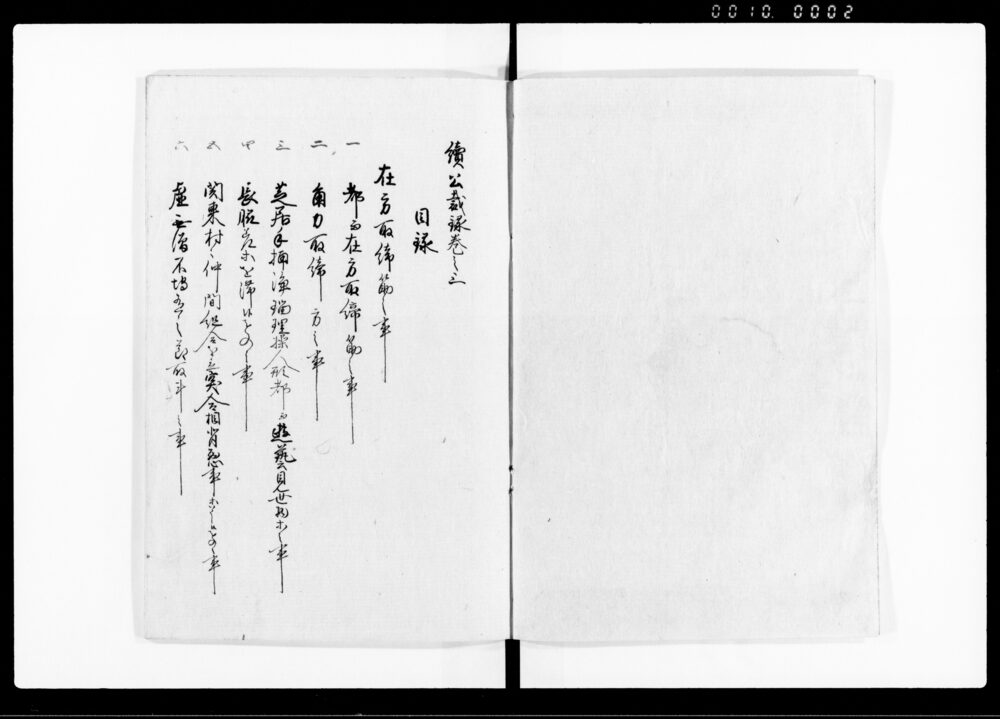 0010 0002
續公裁録巻之三
目録
在方取締筋之事
一 都而在方取締筋之事
二 角力取締方之事
三 芝居手踊浄瑠理操人形都而遊藝見世物等之事
四 長脇差等を帯候もの之事
五 関東村々仲間組合を立実合相背悪事等之もの之事
六 虚無僧不埒有之節取斗之事